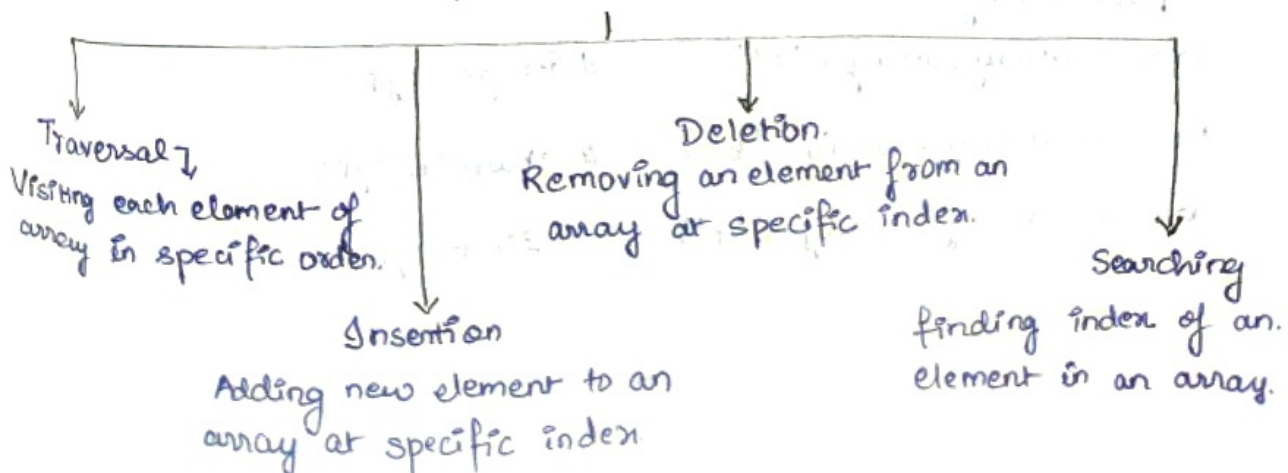 Traversal
Visiting each element of
array in specific order.
Insertion
Adding new element to an
array at specific index
Deletion.
Removing an element from an
array at specific index.
Searching
finding index of an.
element in an array.